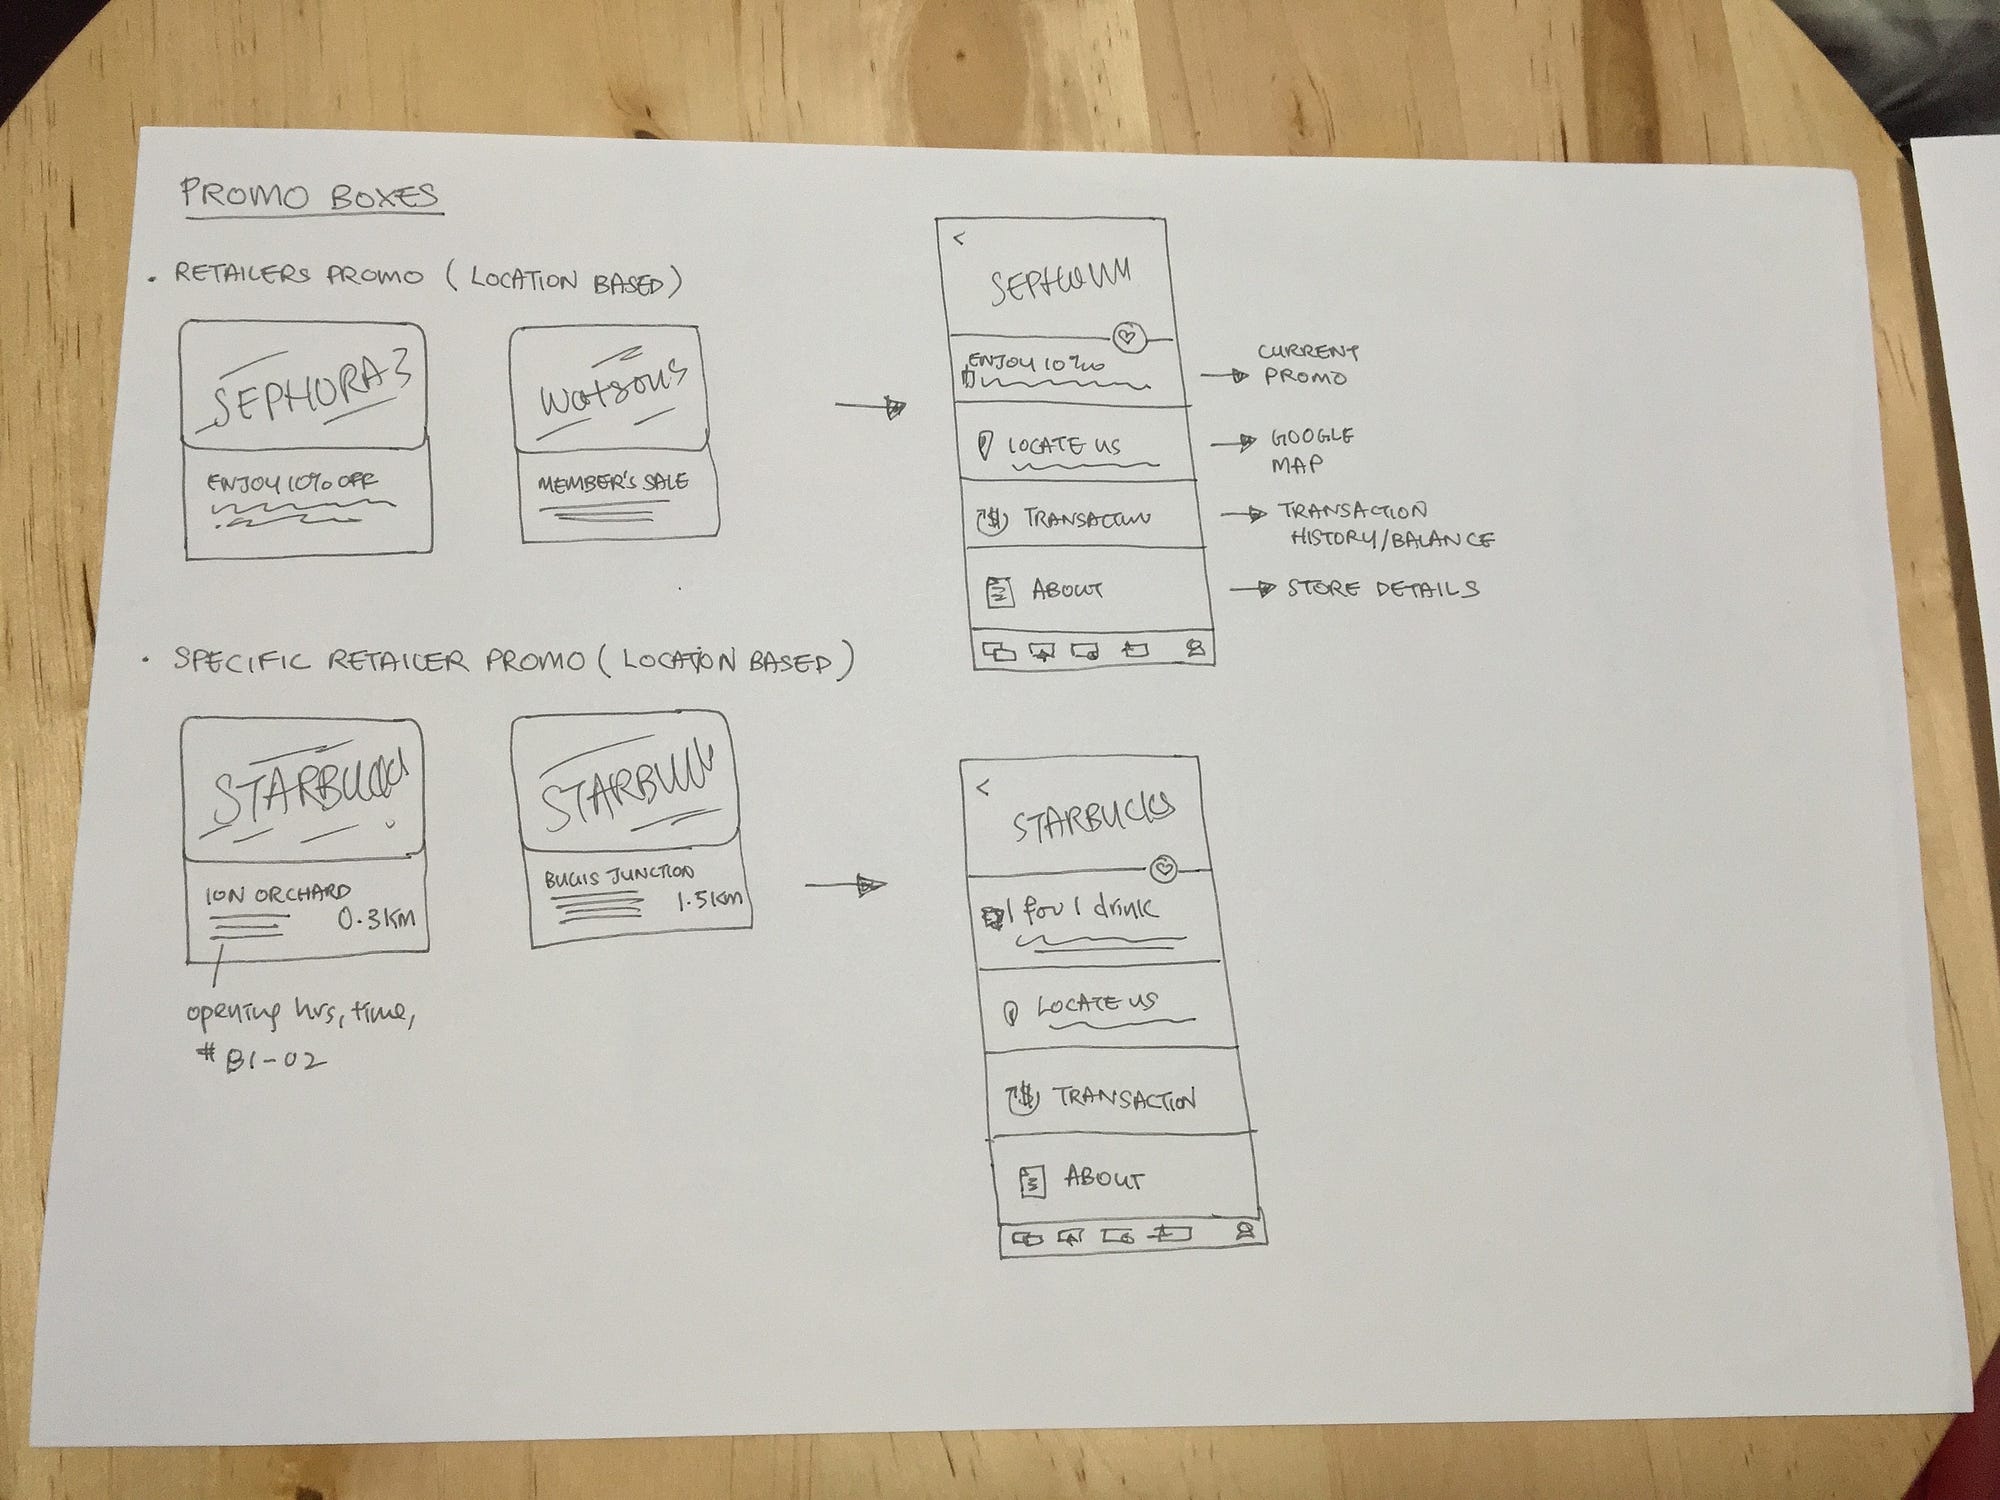 PROMO BOXES
• RETAILERS PROMO (LOCATION BASED)
SEPHORA
ENJOY 10% OFF
Watsons
MEMBER'S SALE
<
ENJOY 10%
LOCATE US
TRANSACTION
ABOUT
CURRENT
PROMO
GOOGLE
MAP
TRANSACTION
HISTORY/BALANCE
STORE DETAILS
• SPECIFIC RETAILER PROMO (LOCATION BASED)
STARBUCKS
ION ORCHARD
0.3KM
opening hrs, time,
# B1-02
BUGIS JUNCTION
1.5KM
<
STARBUCKS
1 for 1 drink
LOCATE US
TRANSACTION
ABOUT